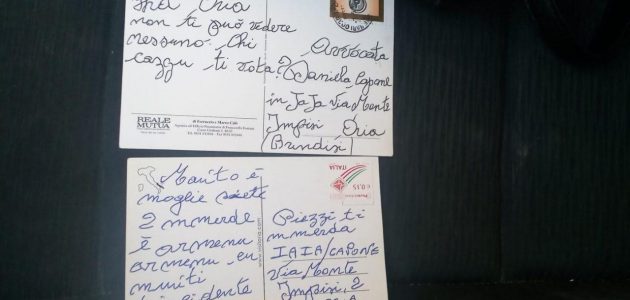 Oria
non ti può vedere
nessuno. Chi
cazzu ti vota?
Avvocata
Daniela Capone
in Iaia Via Monte
Impisi Oria
(Brindisi)
REALE
MUTUA
di Ferruccio e Marco
Marito è
moglie siete
2 mmerde
è armenu
armenu cu
muriti
ITALIA
€ 0,35
Piezzi ti
mmerda
IAIA/CAPONE
Via Monte
Impisi, 2